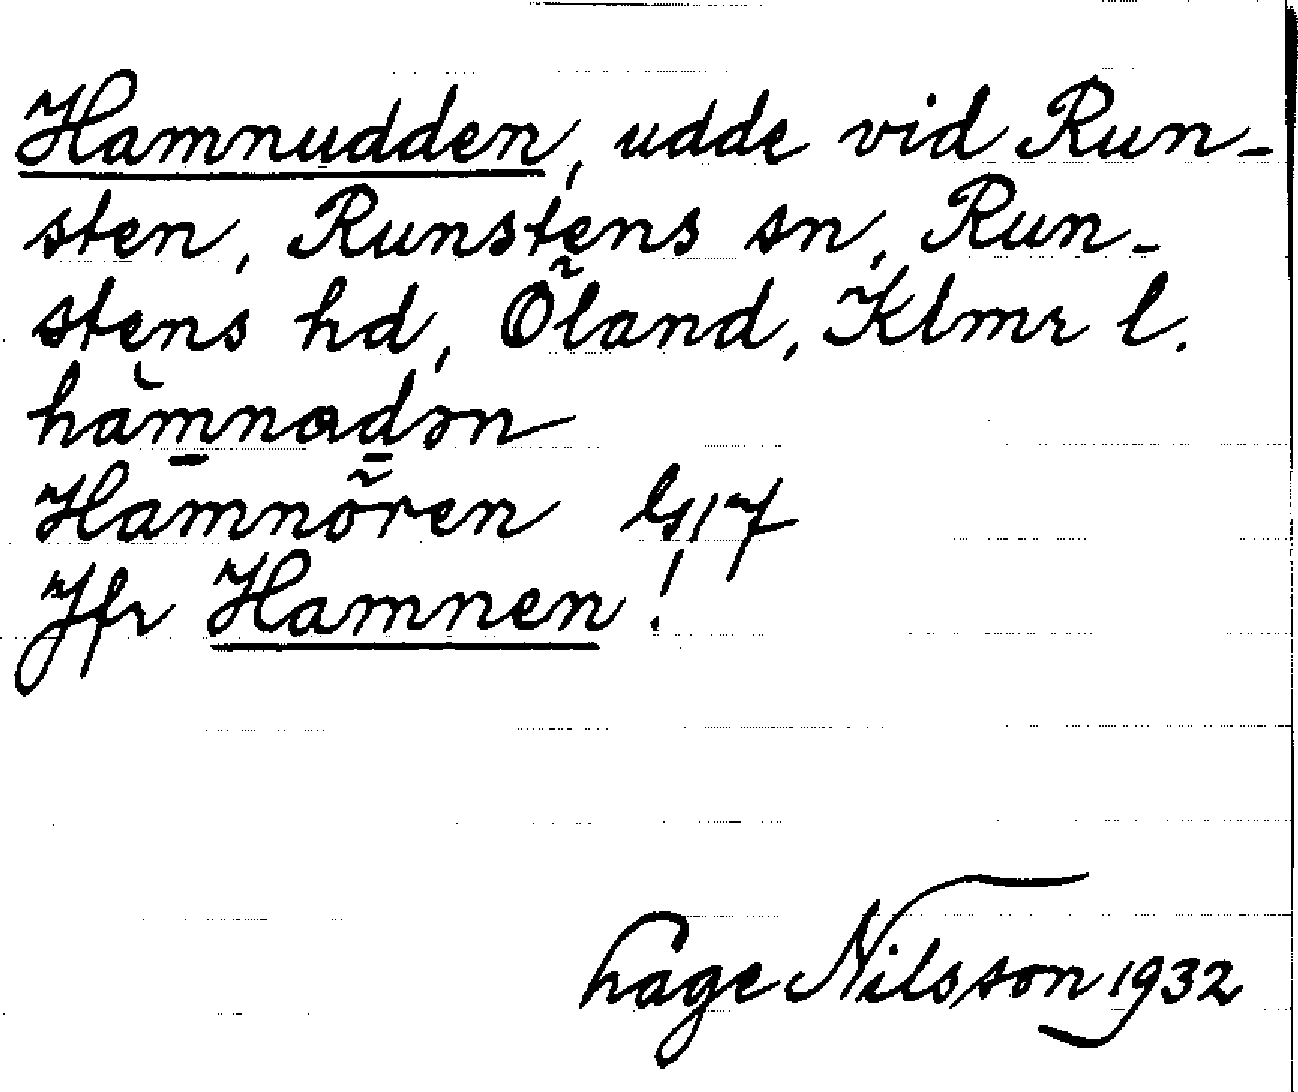 Hamnudden, udde vid Run-
sten, Runstens sn, Run-
stens hd, Öland, Klmr l.
hàmnɷdən
Hamnören G17
Jfr Hamnen!
hage Nilsson 1932